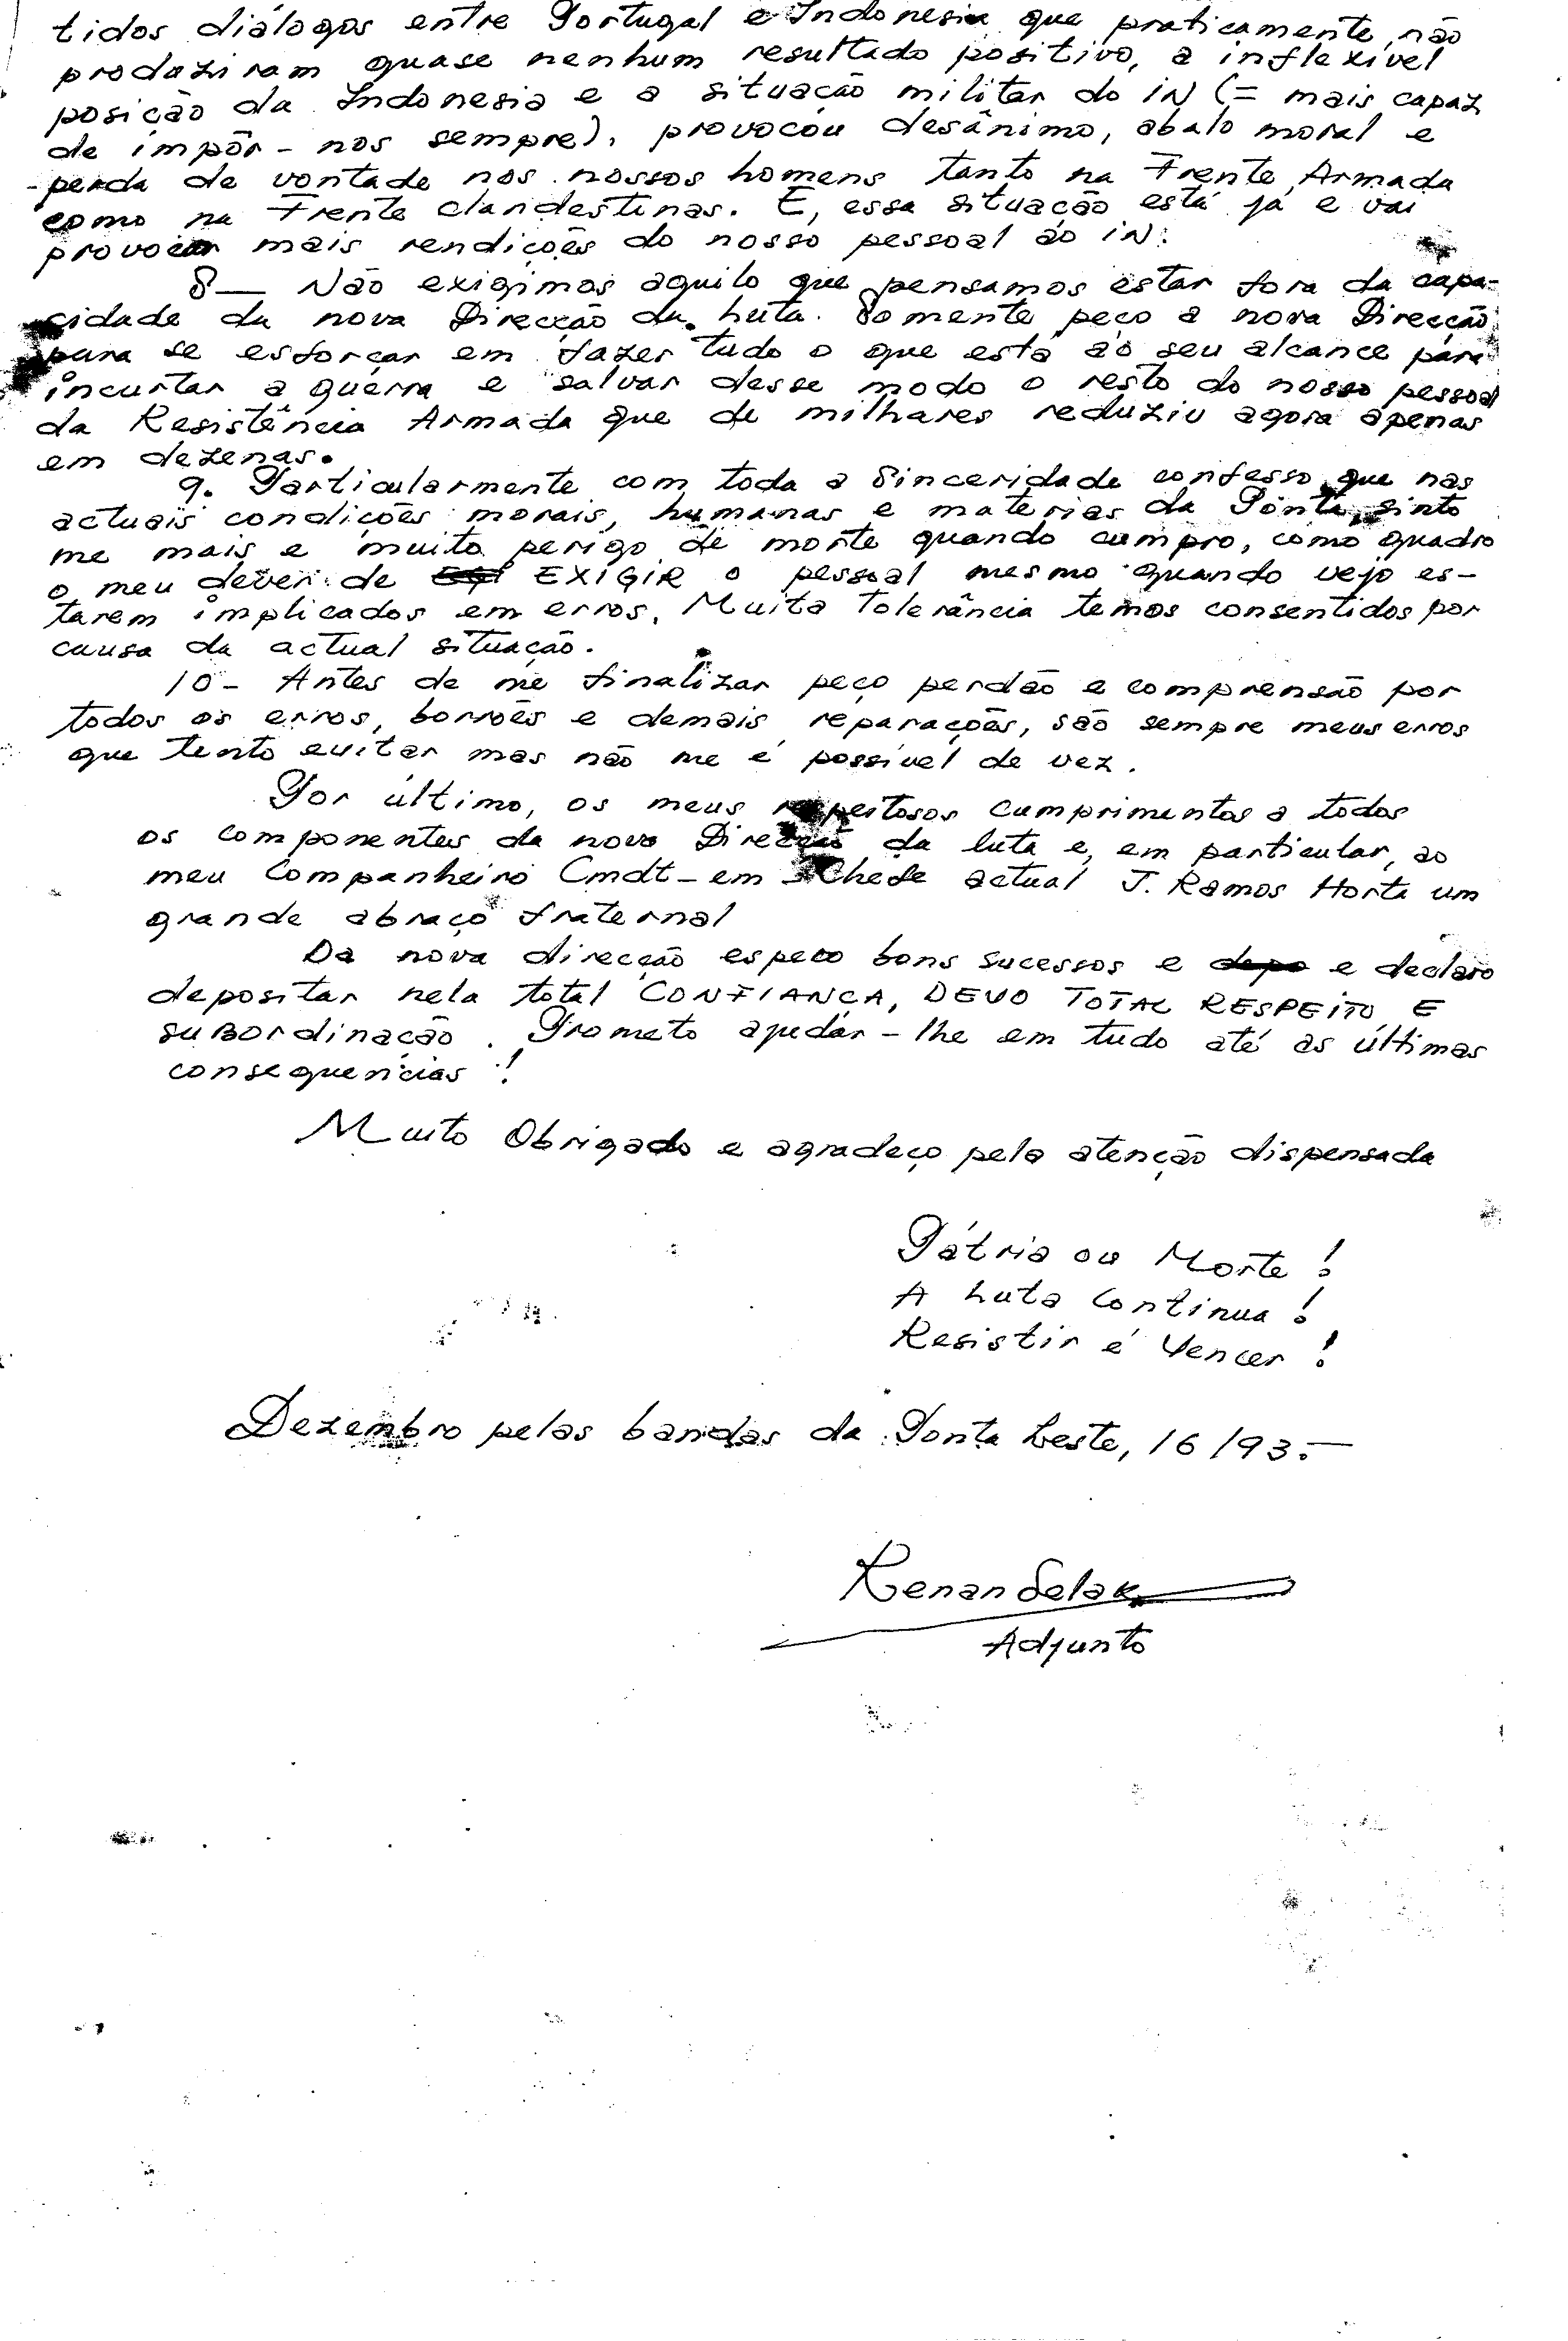 tidos diálogos entre Portugal e Indonesia que praticamente não
produziram quase nenhum resultado positivo, a inflexível
posição da Indonesia e a situação militar do iN (= mais capaz
de impôr-nos sempre), provocou desânimo, abalo moral e
perda de vontade nos nossos homens tanto na Frente Armada
como na Frente clandestinas. E, essa situação está já e vai
provocar mais rendições do nosso pessoal ao iN.
8— Não exigimos aquilo que pensamos estar fora da capa-
cidade da nova Direcção da Luta. Somente peço a nova Direcção
para se esforçar em fazer tudo o que está ao seu alcance para
incurtar a guerra e salvar desse modo o resto do nosso pessoal
da Resistência Armada que de milhares reduziu agora apenas
em dezenas.
9. Particularmente com toda a Sinceridade confesso que nas
actuais condições morais, humanas e materias da Ponta, sinto
me mais e muito perigo de morte quando cumpro, como quadro
o meu dever de EXIGIR o pessoal mesmo quando vejo es-
tarem implicados em erros. Muita Tolerância temos consentidos por
causa da actual situação.
10- Antes de me finalizar peço perdão e comprensão por
todos os erros, borrões e demais reparações, são sempre meus erros
que tento evitar mas não me é possível de vez.
Por último, os meus respeitosos cumprimentos a todos
os componentes da nova Direcção da luta e, em particular, ao
meu Companheiro Cmdt-em Chefe actual J. Ramos Horta um
grande abraço fraternal
Da nova direcção espero bons sucessos e depo e declaro
depositar nela total CONFIANÇA, DEVO TOTAL RESPEITO E
SUBORdinação. Prometo ajudar-lhe em tudo até as últimas
consequencias !
Muito Obrigado e agradeço pela atenção dispensada
Pátria ou Morte !
A Luta Continua !
Resistir é Vencer !
Dezembro pelas bandas da Ponta Leste, 16/93.—
Renan Selak
Adjunto